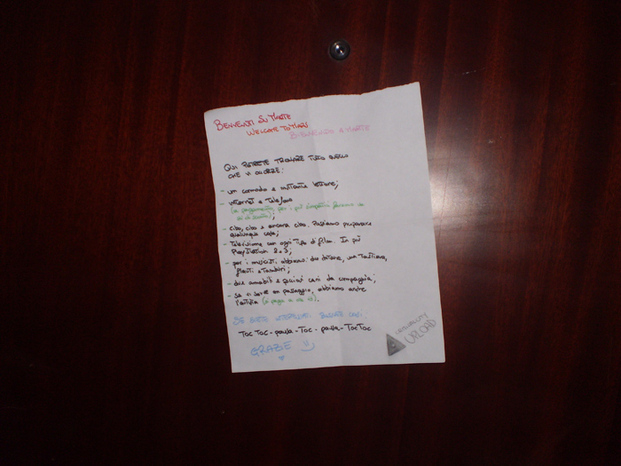 BENVENUTI SU MARTE
WELCOME TO MARS
BIENVENIDO A MARTE
QUI POTRETE TROVARE TUTTO QUELLO
CHE VI OCCORRE:
- un comodo e invitante lettone;
- internet e telefono
(a pagamento, per i più simpatici
- cibo, cibo e ancora cibo. Possiamo preparare
qualunque cosa;
- Televisione con ogni tipo di film. In più
PlayStation 2 e 3;
- per i musicisti, abbiamo due chitarre, una tastiera,
flauti e tamburi;
- due amabili e pacioni cani da compagnia;
- se vi serve un passaggio, abbiamo anche
l'autista (si paga a ore).
SE SIETE INTERESSATI BUSSATE COSÌ:
TOC TOC - pausa - TOC - pausa - TOC TOC
GRAZIE :)
UPLOAD